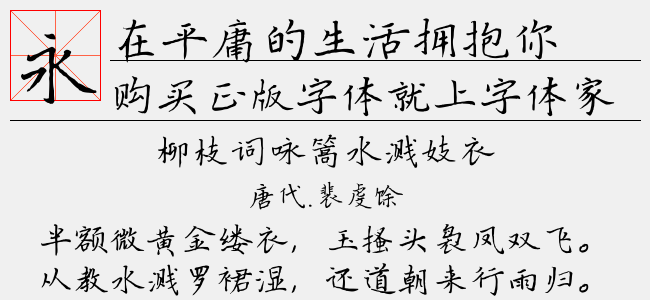 永
在平庸的生活拥抱你
购买正版字体就上字体家
柳枝词咏篙水溅妓衣
唐代.裴虔馀
半额微黄金缕衣，玉搔头袅凤双飞。
从教水溅罗裙湿，还道朝来行雨归。